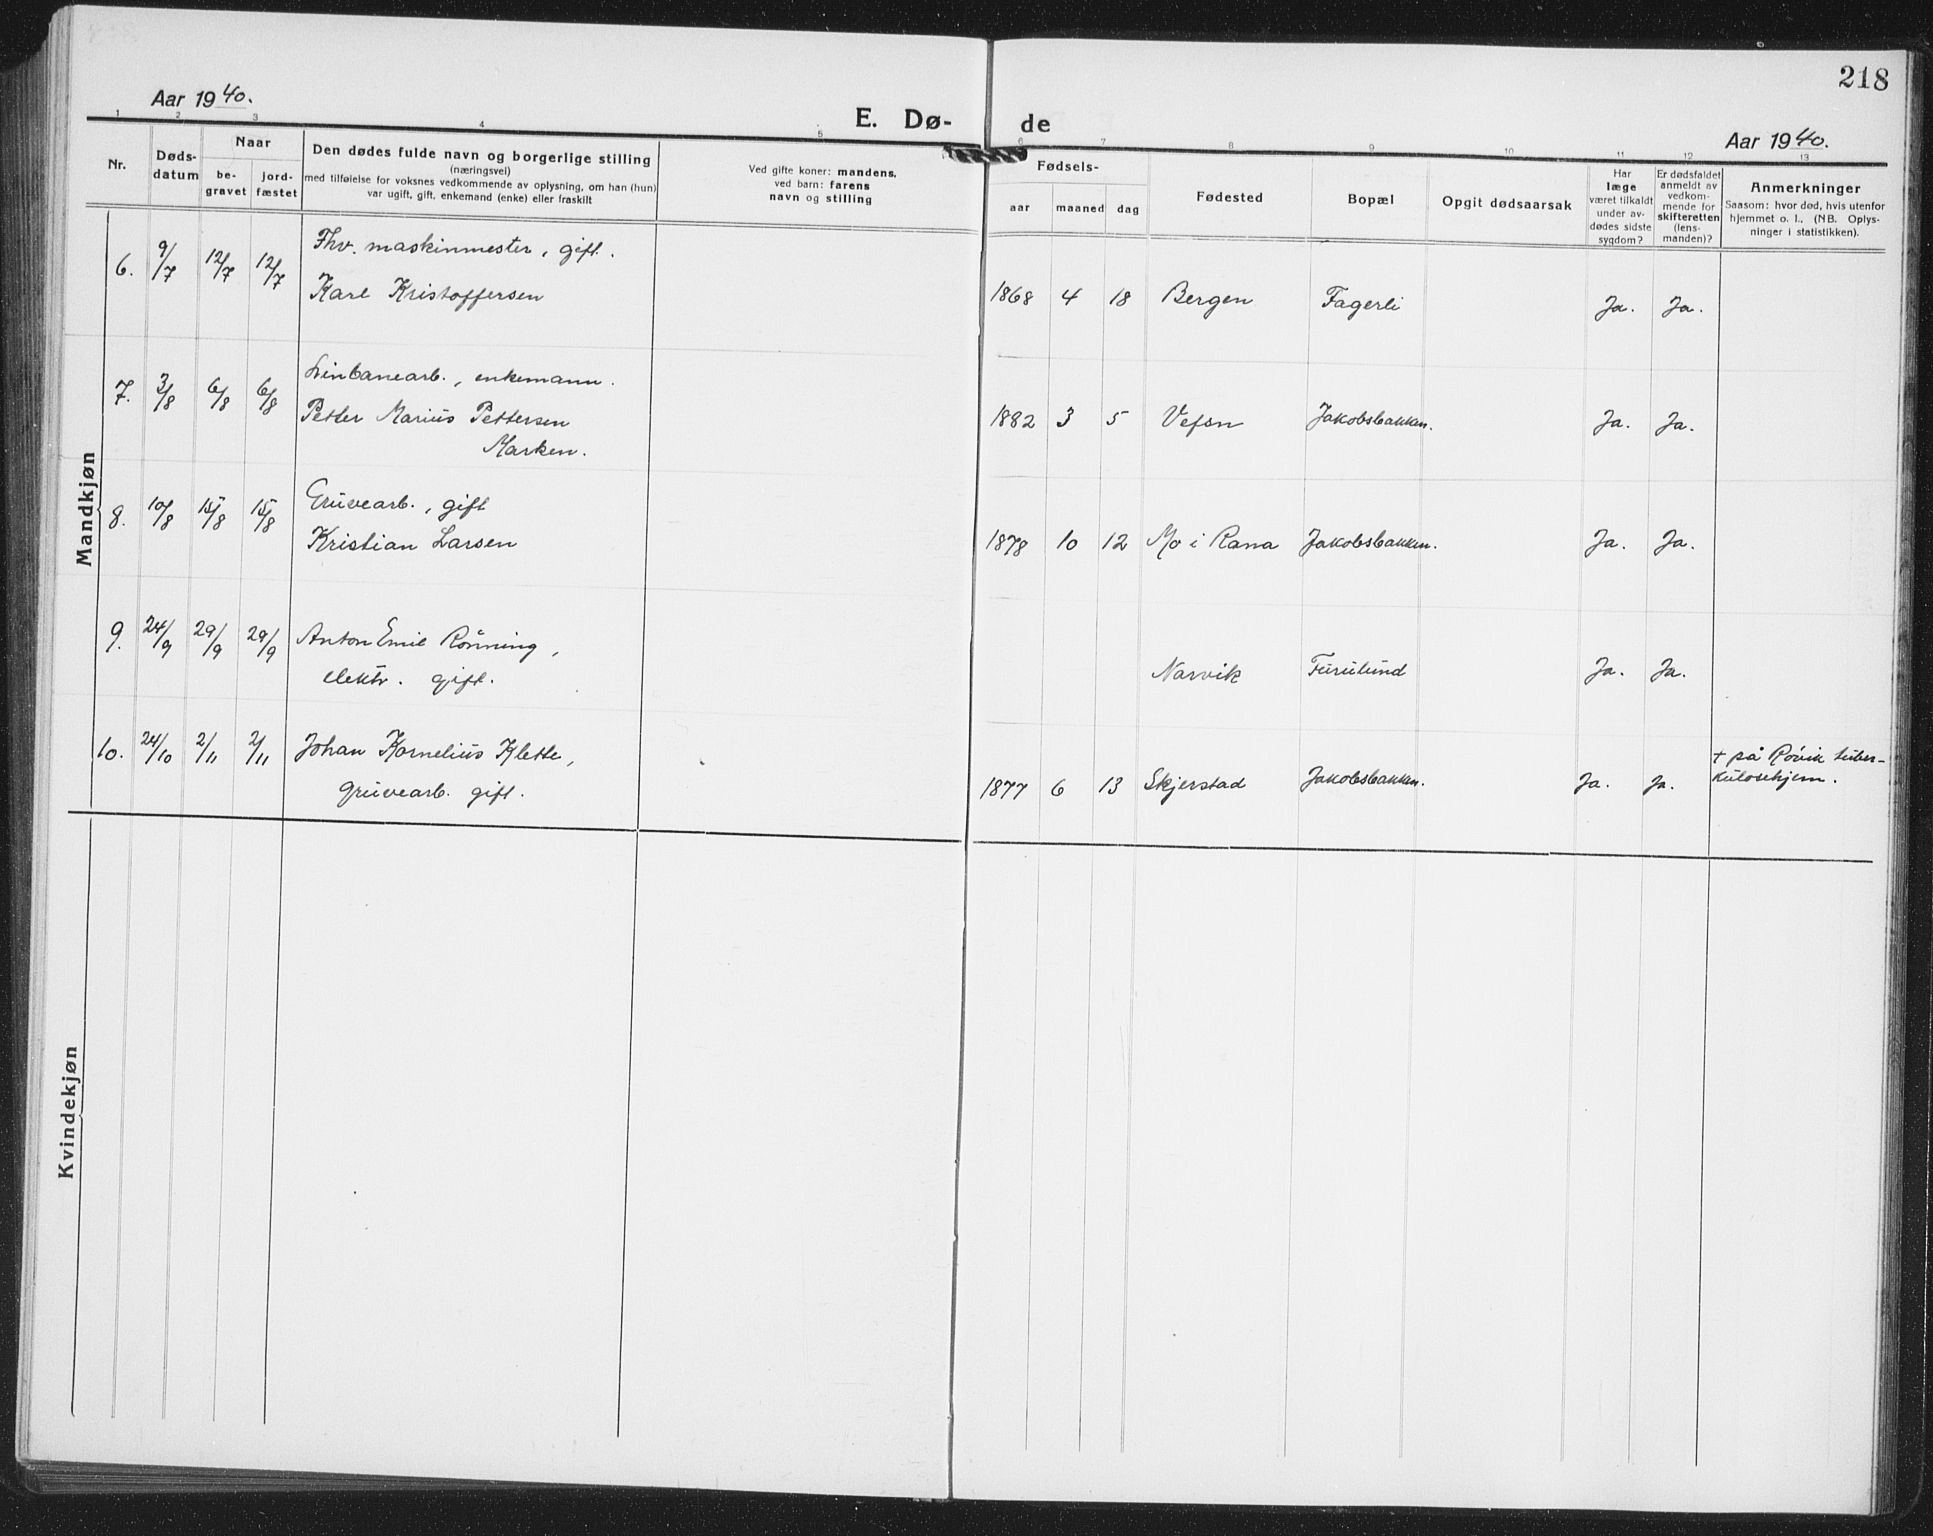 218
Aar 1940.
E. Dø-
de
Aar 1940.
1 2 3 4 5 6 7 8 9 10 11 12 13
Nr.
Døds-
datum
Naar
be-
gravet
jord-
fæstet
Den dødes fulde navn og borgerlige stilling
(næringsvei)
med tilføielse for voksnes vedkommende av oplysning, om han (hun)
var ugift, gift, enkemand (enke) eller fraskilt
Ved gifte koner: mandens,
ved barn: farens
navn og stilling
Fødsels-
aar maaned dag
Fødested
Bopæl
Opgit dødsaarsak
Har
læge
været tilkaldt
under av-
dødes sidste
sygdom?
Er dødsfaldet
anmeldt av
vedkom-
mende for
skifteretten
(lens-
manden)?
Anmerkninger
Saasom: hvor død, hvis utenfor
hjemmet o. l., (NB. Oplys-
ninger i statistikken).
Mandkjøn
6. 9/7 12/7 12/7 Fhv. maskinmester, gift.
Karl Kristoffersen
1868 4 18 Bergen Fagerli Ja. Ja.
7. 3/8 6/8 6/8 Linbanearb., enkemann.
Petter Marius Pettersen
Marken.
1882 3 5 Vefsn Jakobsbakken. Ja. Ja.
8. 10/8 15/8 15/8 Gruvearb., gift
Kristian Larsen
1878 10 12 Mo i Rana Jakobsbakken. Ja. Ja.
9. 24/9 29/9 29/9 Anton Emil Rönning,
elektr. gift.
Narvik Furulund Ja. Ja.
10. 24/10 2/11 2/11 Johan Kornelius Klette,
gruvearb. gift.
1877 6 13 Skjerstad Jakobsbakken. Ja. Ja.
† på Røvik tuber-
kulosehjem.
Kvindekjøn